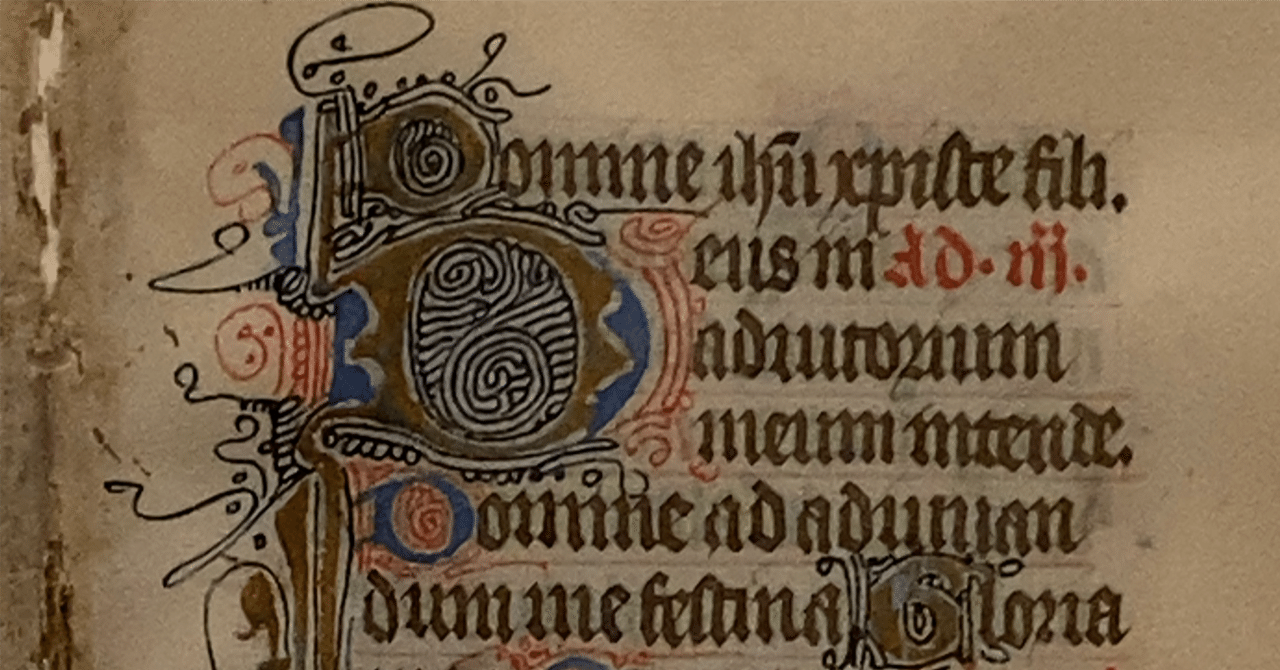 Domine ihū xpiste fili.
Deus in Ad· iij.
adiutorium
meum intende.
Domine ad adiuuan
dum me festina Gloria